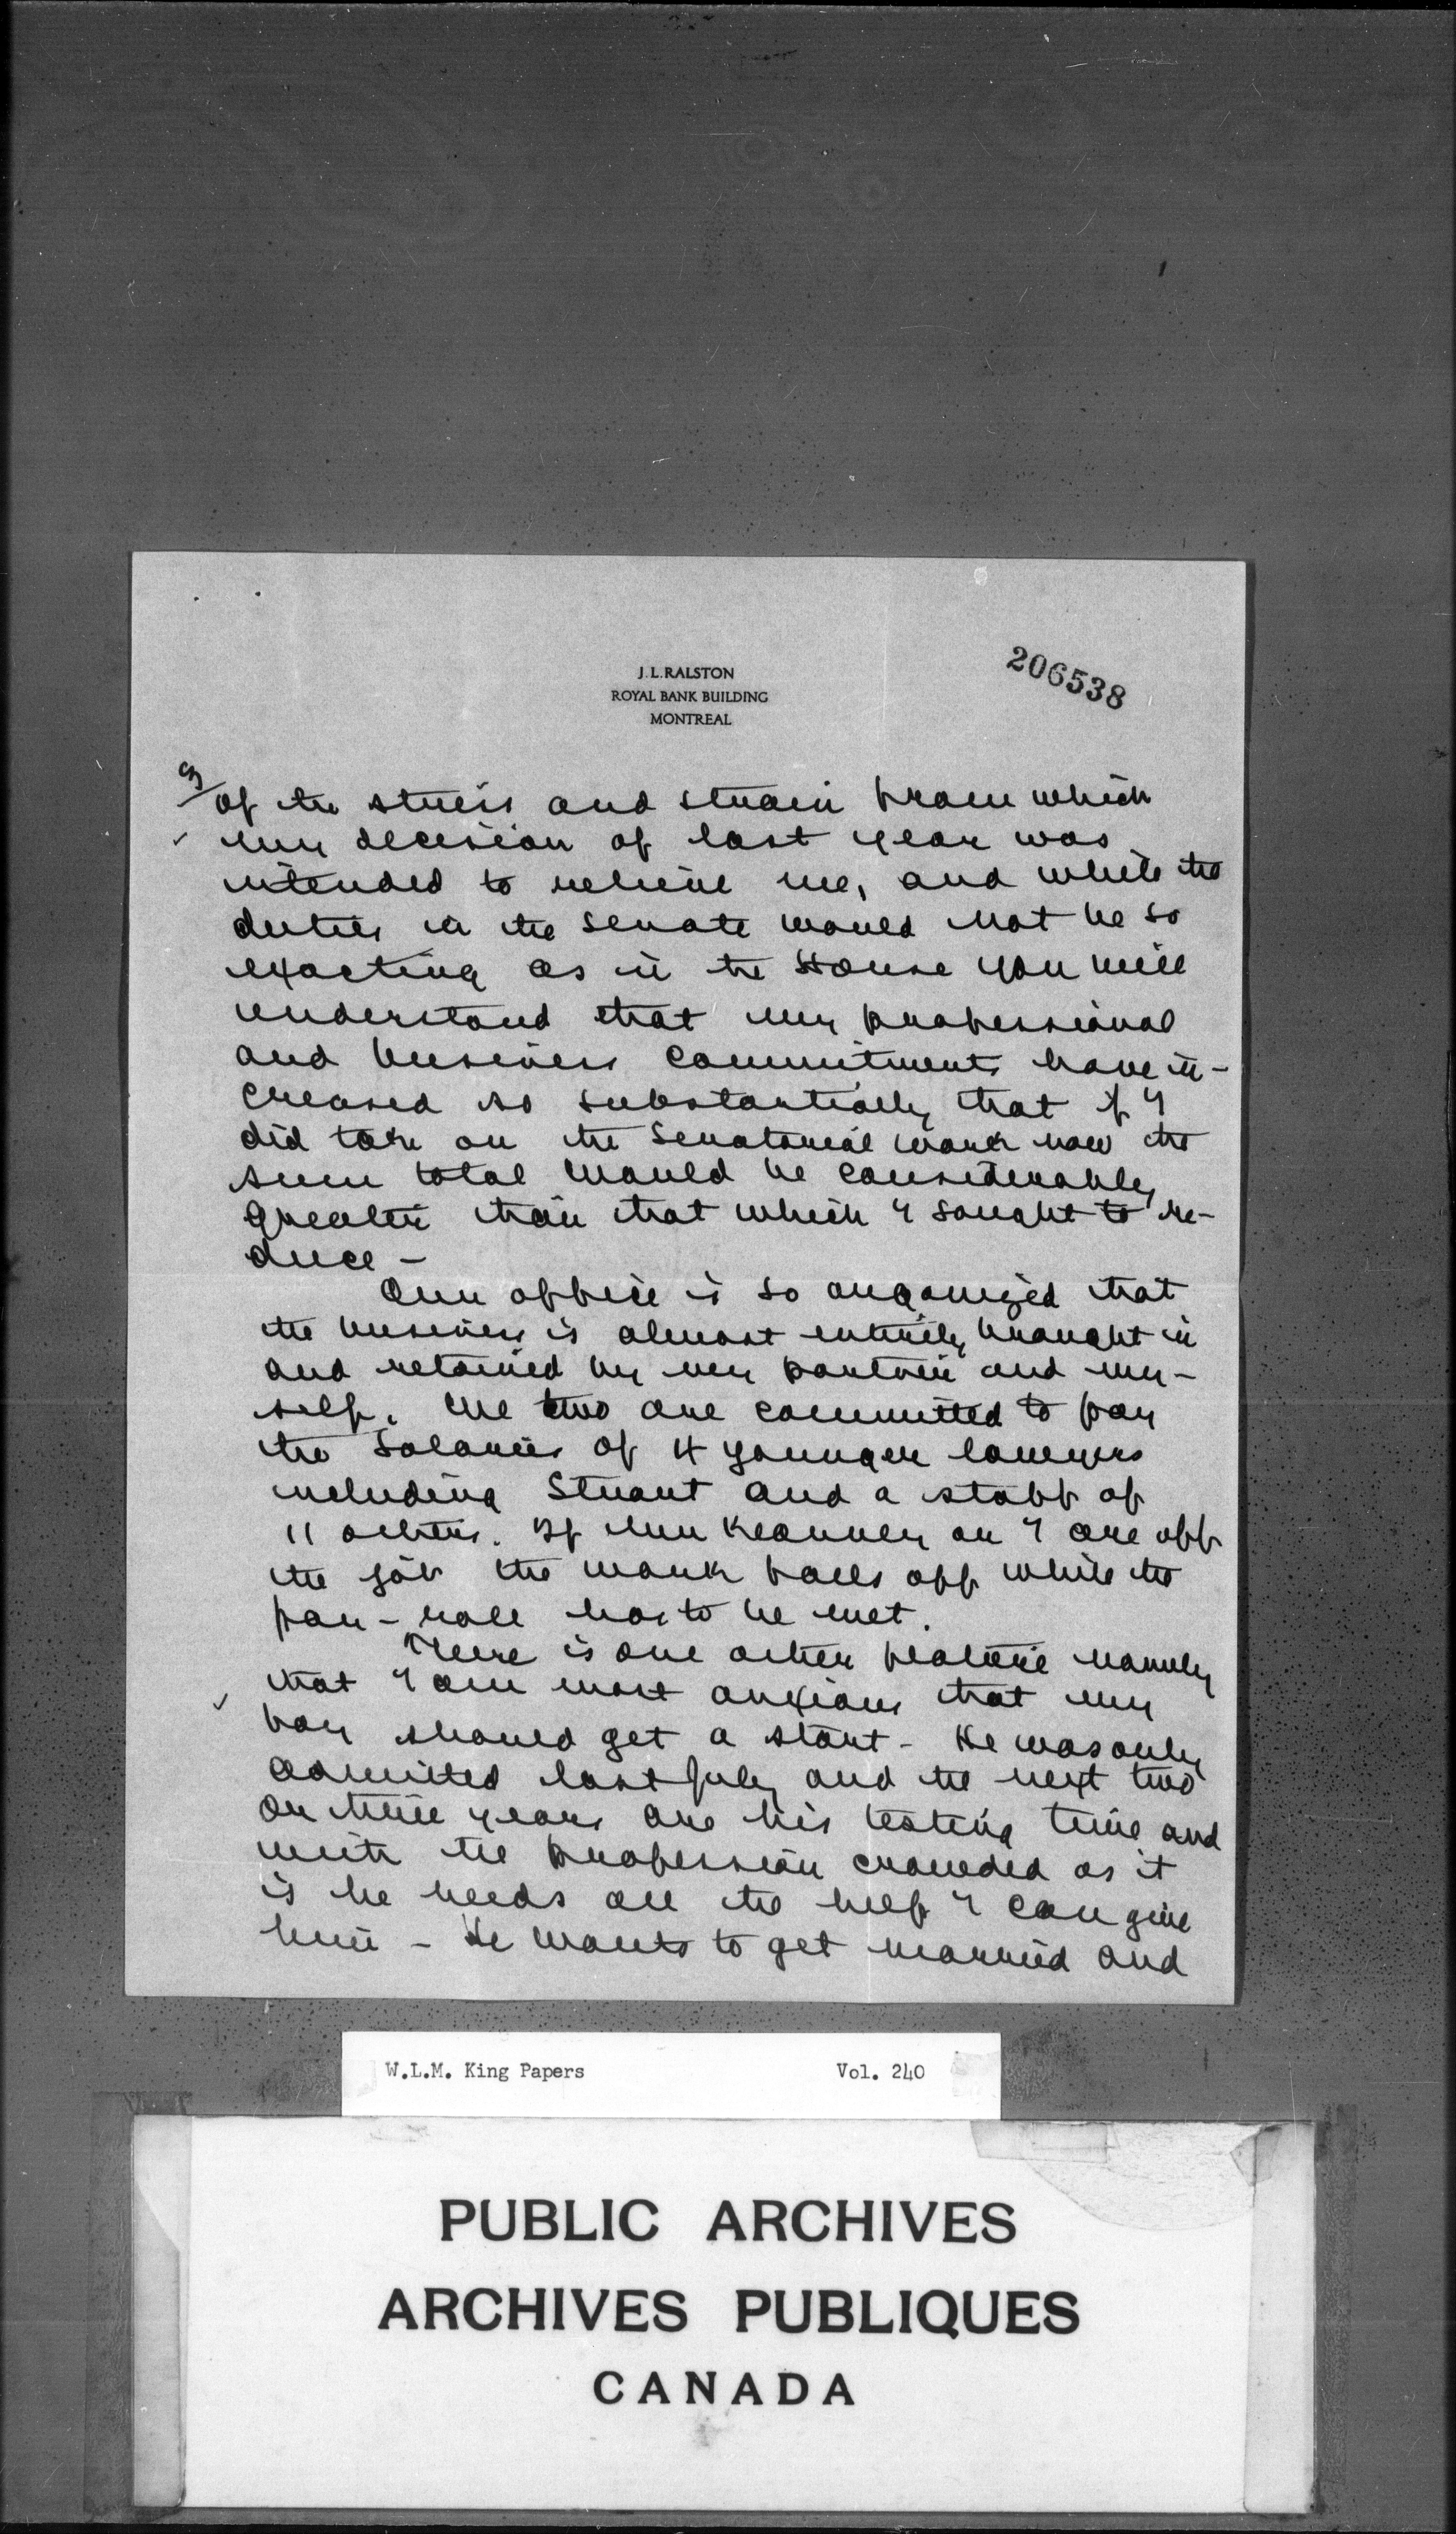 J.L.RALSTON
ROYAL BANK BUILDING
MONTREAL
206538
3/
of the stress and strain from which
my decision of last year was
intended to relieve me, and while the
duties in the Senate would not be so
exacting as in the House you will
understand that my professional
and business commitments have in-
creased so substantially that if I
did take on the Senatorial work now the
sum total would be considerably
greater than that which I sought to re-
duce -
Our office is so organized that
the business is almost entirely brought in
and retained by my partner and my-
self. We two are committed to pay
the salaries of 4 younger lawyers
including Stuart and a staff of
11 others. If Mr Kearney or I are off
the job the work falls off while the
pay-roll has to be met.
There is one other feature namely
that I am most anxious that my
boy should get a start - He was only
admitted last July and the next two
or three years are his testing time and
with the profession crowded as it
is he needs all the help I can give
him - He wants to get married and
W.L.M. King Papers Vol. 240
PUBLIC ARCHIVES
ARCHIVES PUBLIQUES
CANADA